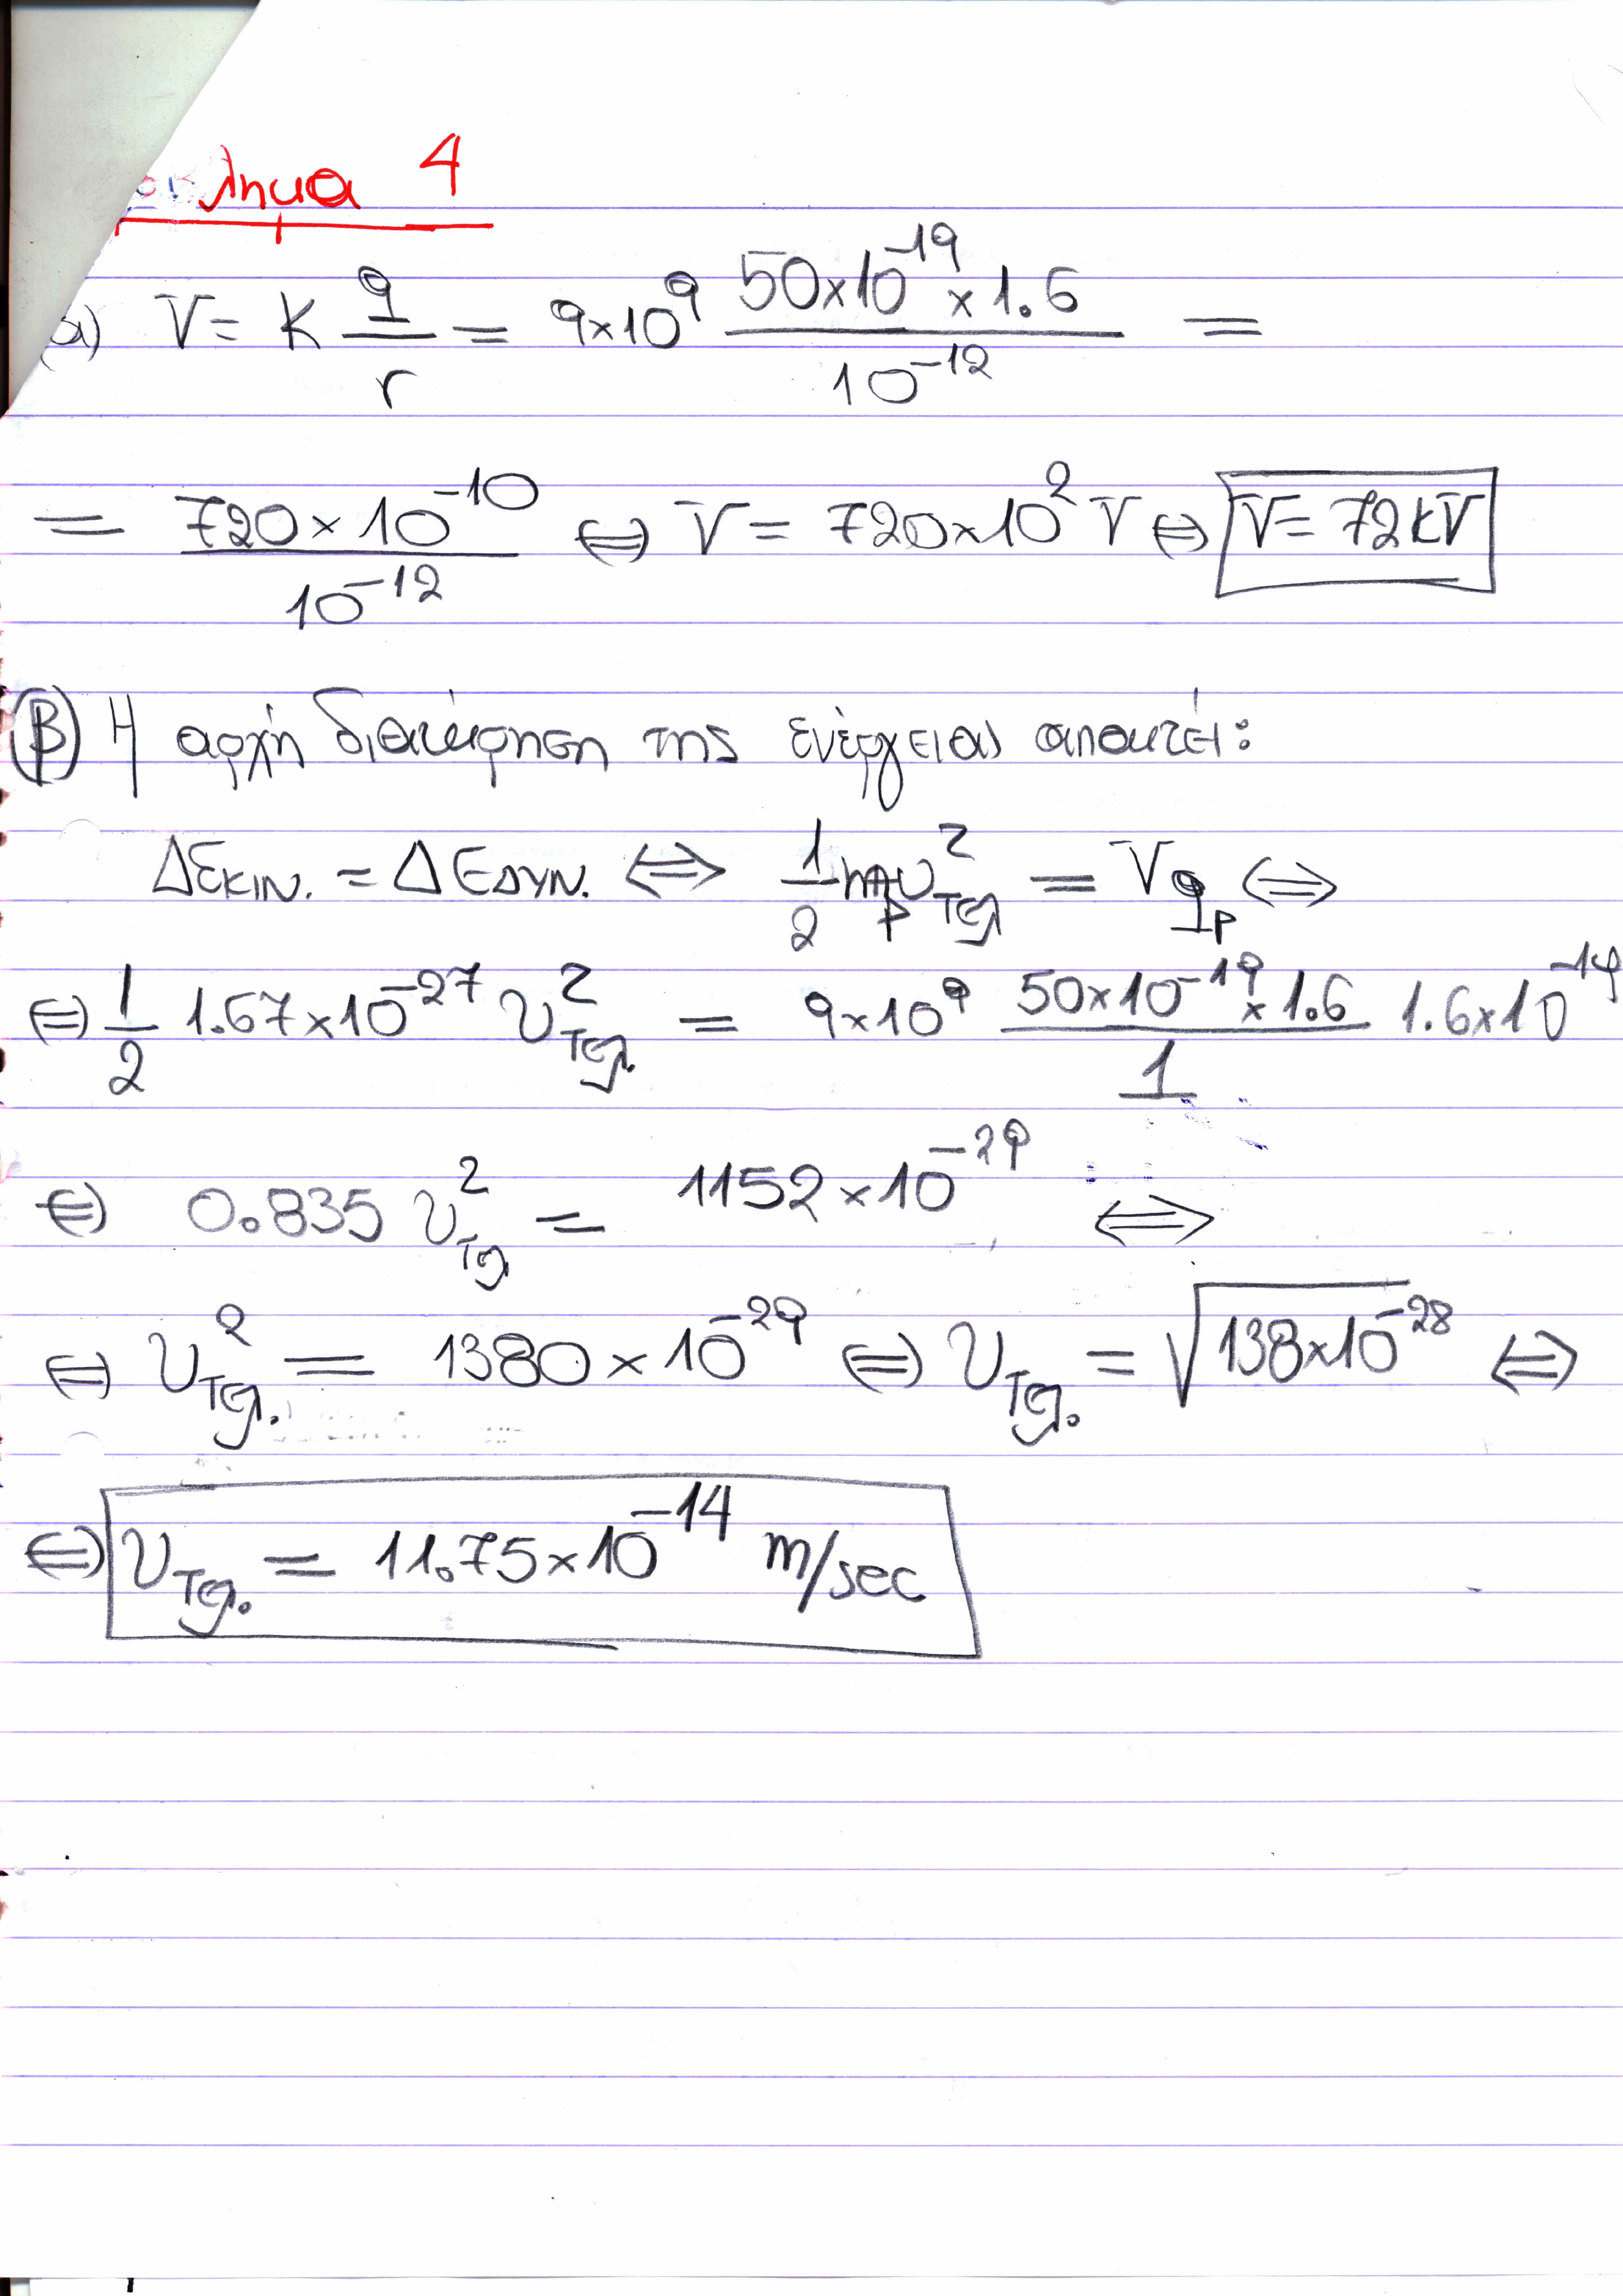 λημα 4
α) V = K q/r = 9×10⁹ 50×10⁻¹⁹ × 1.6 / 10⁻¹² =
= 720×10⁻¹⁰ / 10⁻¹² ⇔ V = 720×10² V ⇔ V = 72kV
β) Η αρχή διατήρηση της ενέργειας απαιτεί:
ΔΕκιν. = ΔΕΔΥΝ. ⇔ 1/2 mₚυ²τελ = Vqₚ ⇔
⇔ 1/2 1.67×10⁻²⁷ υ²τελ. = 9×10⁹ 50×10⁻¹⁹ × 1.6 / 1 1.6×10⁻¹⁹
⇔ 0.835 υ²τελ = 1152×10⁻²⁹ ⇔
⇔ υ²τελ. = 1380×10⁻²⁹ ⇔ υτελ. = √138×10⁻²⁸ ⇔
⇔ υτελ. = 11.75×10⁻¹⁴ m/sec